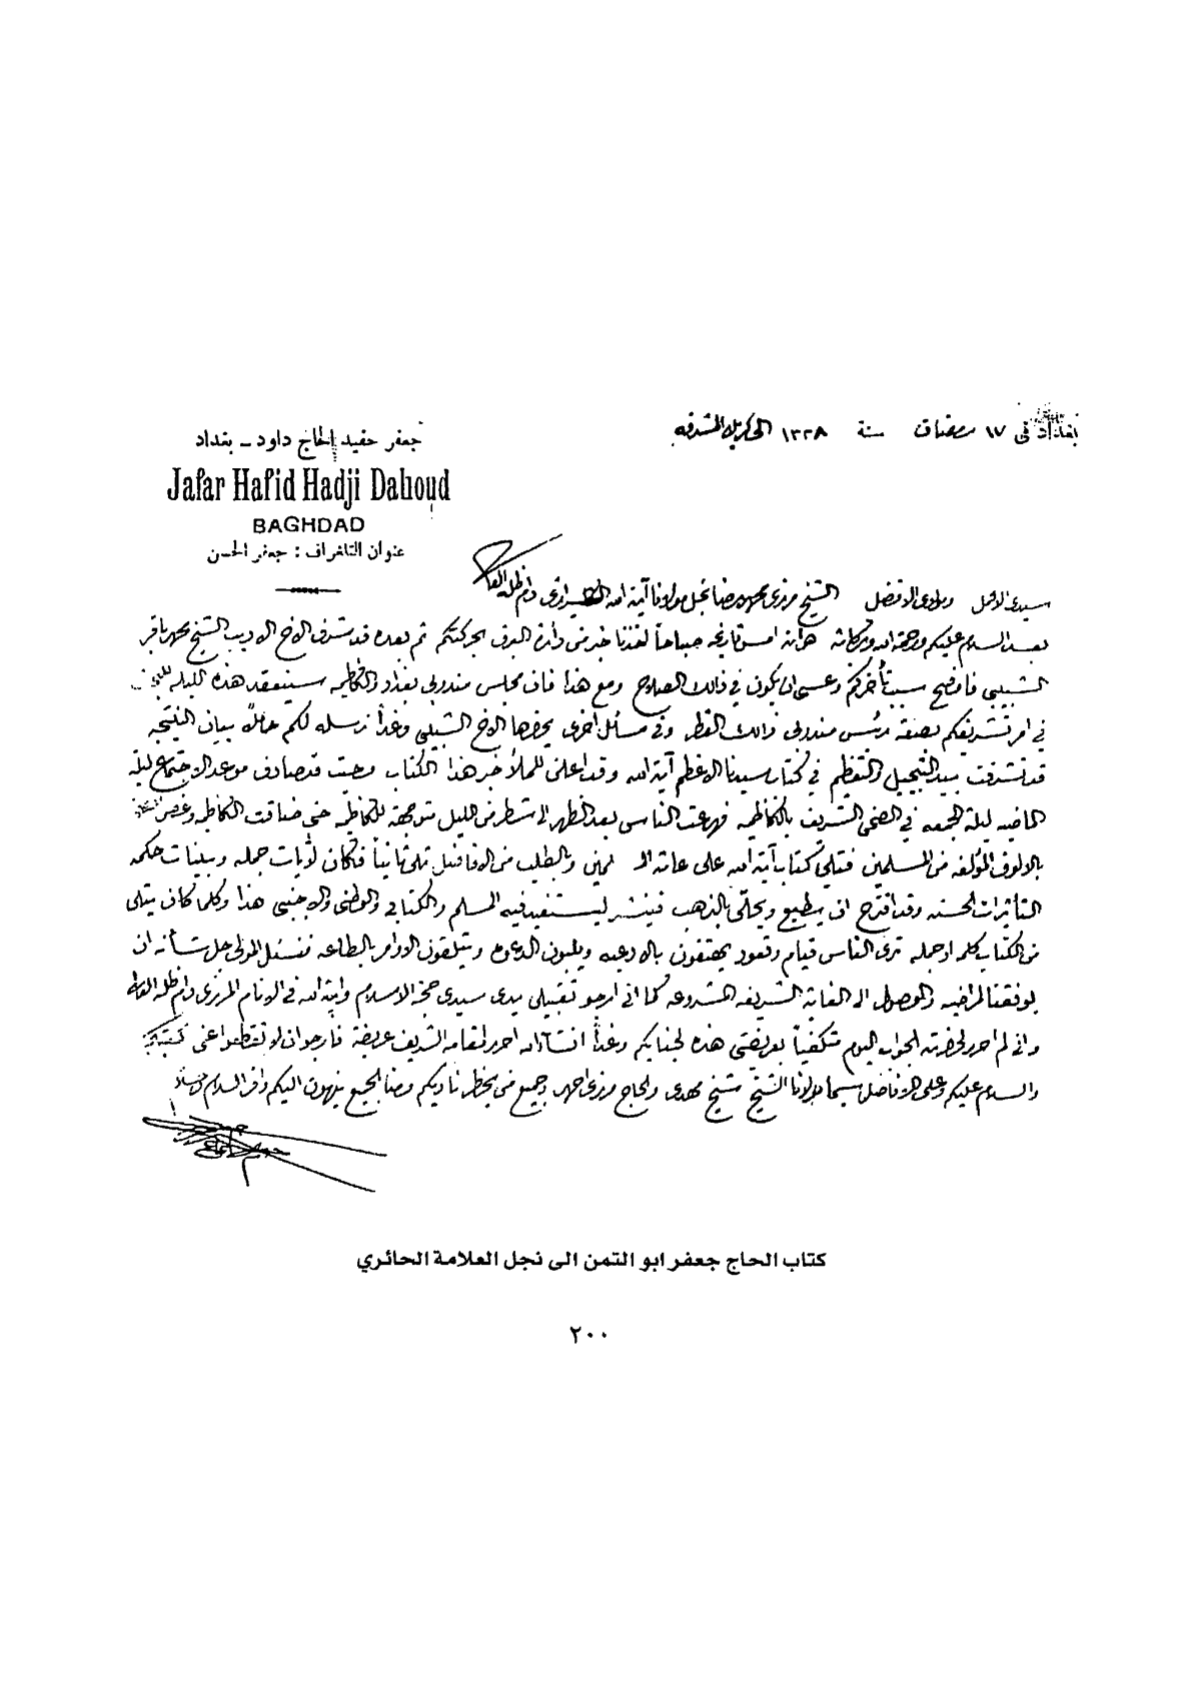 بغداد في ١٧ رمضان سنة ١٣٣٨ الى كربلاء المشرفه
جعفر حفيد الحاج داود - بغداد
Jafar Hafid Hadji Dahoud
BAGHDAD
عنوان التلغراف : جعفر الحسن
سيدي الاجل ومولاي الافضل الشيخ ميرزى محمد رضا نجل مولانا آية الله الشيرازي دام ظله العالي
بعد السلام عليكم ورحمة الله وبركاته هو انه امس تاريخه صباحاً اخذنا خبر من دائرة البرق بحركتكم ثم بعده قد تشرف الاخ الاديب الشيخ محمد باقر
الشبيبي فاوضح سبب تأخركم وعسى ان يكون في ذالك الصلاح ومع هذا فان مجلس مندوبي بغداد والكاظميه سينعقد هذه الليله
في امر تشريفكم بصفة رئيس مندوبي ذالك القطر وفي مسائل اخرى يحضرها الاخ الشبيبي وغداً نرسله لكم حاملاً بيان النتيجه
قد تشرفت بيد التبجيل والتعظيم في كتاب سيدنا الاعظم آية الله وقد اعلن للملأ خبر هذا الكتاب وحيث قد صادف موعد الاجتماع ليلة
الماضيه ليلة الجمعه في الصحن الشريف بالكاظميه فهرعت الناس بعد الظهر الى شطر من الليل متوجهة للكاظميه حتى ضاقت الكاظميه وغص
بالالوف المؤلفه من المسلمين فتلي كتاب آية الله على عامة وبالطلب من الافاضل تلي ثانياً فكان لآيات جمله وبينات حكمه
التأثيرات الحسنه وقد اقترح ان يطبع ويحلّى بالذهب فينشر ليستفيد فيه المسلم والكتابي والوطني والاجنبي هذا وكلما كان يتلى
من الكتاب كلمه او جمله ترى الناس قيام وقعود يهتفون بالادعيه ويلبون الدعوه ويتلقون الاوامر بالطاعه فنسئل المولى جل شأنه ان
يوفقنا لمراضيه والوصول الى الغاية الشريفه المشروعه كما اني ارجو تقبيلي يدى سيدي حجة الاسلام وآية الله في الانام الميرزى دام ظله العالي
واني لم احرر لحضرته الجواب اليوم مكتفياً بعريضتي هذه لجنابكم وغداً انشاءالله احرر لمقامه الشريف عريضة فارجو ان لا تقطعوا عني كتبكم
والسلام عليكم وعلى الافاضل سيما مولانا الشيخ شيخ مهدى والحاج ميرزى احمد وجميع من يحظر ناديكم ومنا الجميع ينهون اليكم وافر السلام
كتاب الحاج جعفر ابو التمن الى نجل العلامة الحائري
٢٠٠